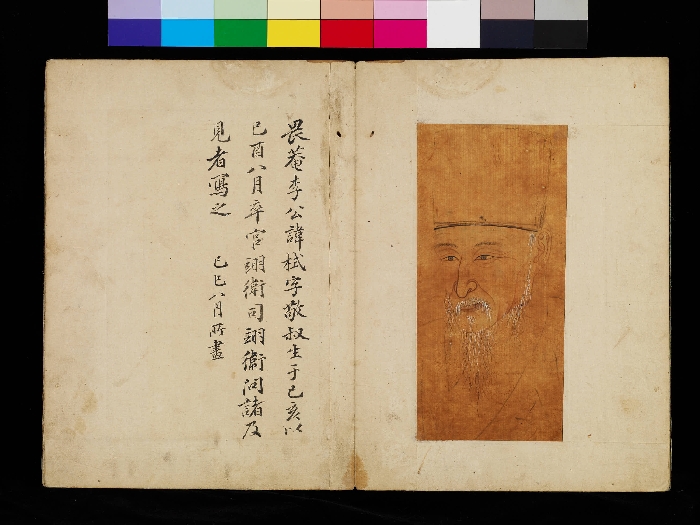 畏菴李公諱栻字敬叔生于己亥以
己酉八月卒官翊衛司翊衛問諸及
見者寫之 己巳八月所畫